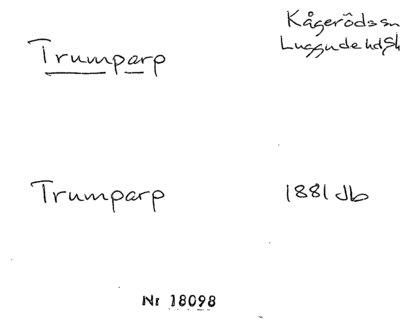 Trumparp
Kågerödssn
Luggudehd Sk
Trumparp
1881 Jb
Nr 18098